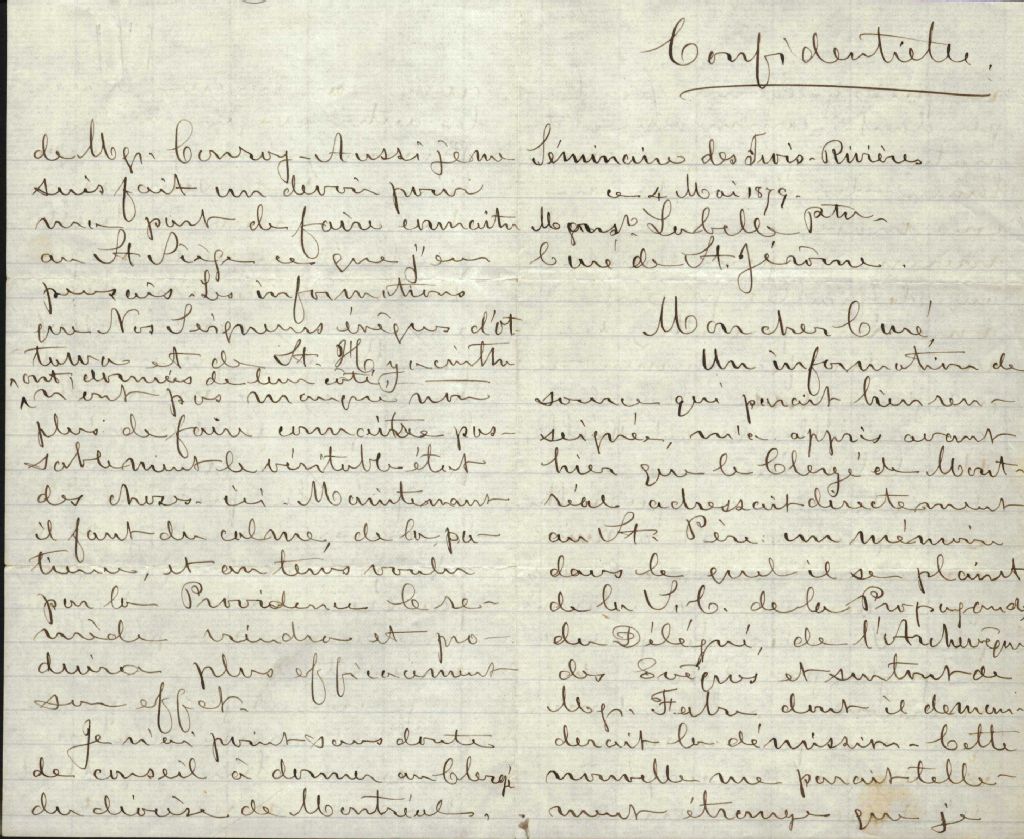 Confidentielle.
Séminaire des Trois-Rivières
ce 4 Mai 1879.
Monsr. Labelle Ptre-
Curé de St. Jérôme.
Mon cher Curé,
Un information de
source qui parait bien ren-
seignée, m'a appris avant
hier que le Clergé de Mont-
réal adressait directement
au St. Père un mémoire
dans le quel il se plaint
de la S. C. de la Propagande,
du Délégué, de l'Archevêque
des Evêques et surtout de
Mgr. Fabre dont il deman-
derait la démission - Cette
nouvelle me parait telle-
ment étrange que je
de Mgr. Conroy - Aussi je me
suis fait un devoir pour
ma part de faire connaitre
au St Siége ce que j'en
pensais. Les informations
que Nos Seigneurs évêques d'Ot-
tawa et de St. Hyacinthe
ont données de leur côté,
n'ont pas manqué non
plus de faire connaitre pas-
sablement le véritable état
des choses ici. Maintenant
il faut du calme, de la pa-
tience, et au tems voulu
par la Providence le re-
mède viendra et pro-
duira plus efficacement
son effet.
Je n'ai point sans doute
de conseil à donner au Clergé
du diocèse de Montréal,